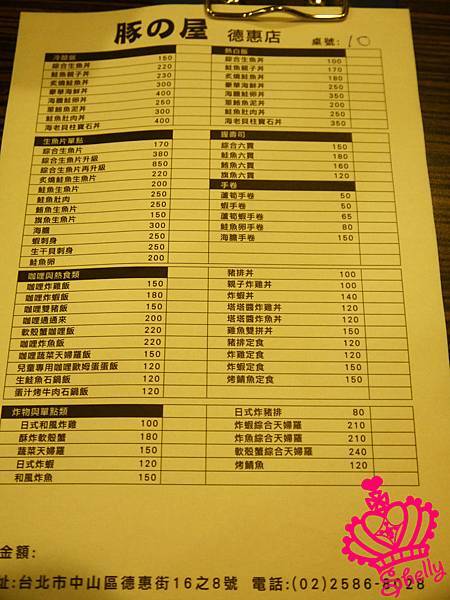 豚の屋 德惠店 桌號: 10
冷醋飯
綜合生魚丼 150
鮭魚親子丼 220
炙燒鮭魚丼 230
豪華海鮮丼 300
海膽鮭卵丼 400
蔥鮪魚泥丼 200
鮭魚肚肉丼 300
海老貝柱寶石丼 400
熱白飯
綜合生魚丼 100
鮭魚親子丼 170
炙燒鮭魚丼 180
豪華海鮮丼 250
海膽鮭卵丼 350
蔥鮪魚泥丼 150
鮭魚肚肉丼 250
海老貝柱寶石丼 350
生魚片單點
綜合生魚片 170
綜合生魚片升級 380
綜合生魚片再升級 850
炙燒鮭魚生魚片 220
鮭魚生魚片 200
鮭魚肚肉 250
鮪魚生魚片 200
旗魚生魚片 150
海膽 300
蝦刺身 250
生干貝刺身 250
鮭魚卵 200
握壽司
綜合六貫 150
鮭魚六貫 180
鮪魚六貫 160
旗魚六貫 120
手卷
蘆筍手卷 50
蝦手卷 50
蘆筍蝦手卷 65
鮭魚卵手卷 80
海膽手卷 150
咖哩與熱食類
咖哩炸雞飯 150
咖哩炸蝦飯 180
咖哩雙豬飯 150
咖哩通通來 200
軟殼蟹咖哩飯 220
咖哩炸魚飯 220
咖哩蔬菜天婦羅飯 150
兒童專用咖哩歐姆蛋蛋飯 120
生鮭魚石鍋飯 120
蛋汁烤牛肉石鍋飯 120
豬排丼 100
親子炸雞丼 100
炸蝦丼 140
塔塔醬炸雞丼 120
塔塔醬炸魚丼 120
雞魚雙拼丼 150
豬排定食 120
炸雞定食 120
炸魚定食 150
烤鯖魚定食 150
炸物與單點類
日式和風炸雞 100
酥炸軟殼蟹 180
蔬菜天婦羅 150
日式炸蝦 120
和風炸魚 150
日式炸豬排 80
炸蝦綜合天婦羅 210
炸魚綜合天婦羅 210
軟殼蟹綜合天婦羅 240
烤鯖魚 120
金額:
址:台北市中山區德惠街16之8號 電話:(02)2586-8028